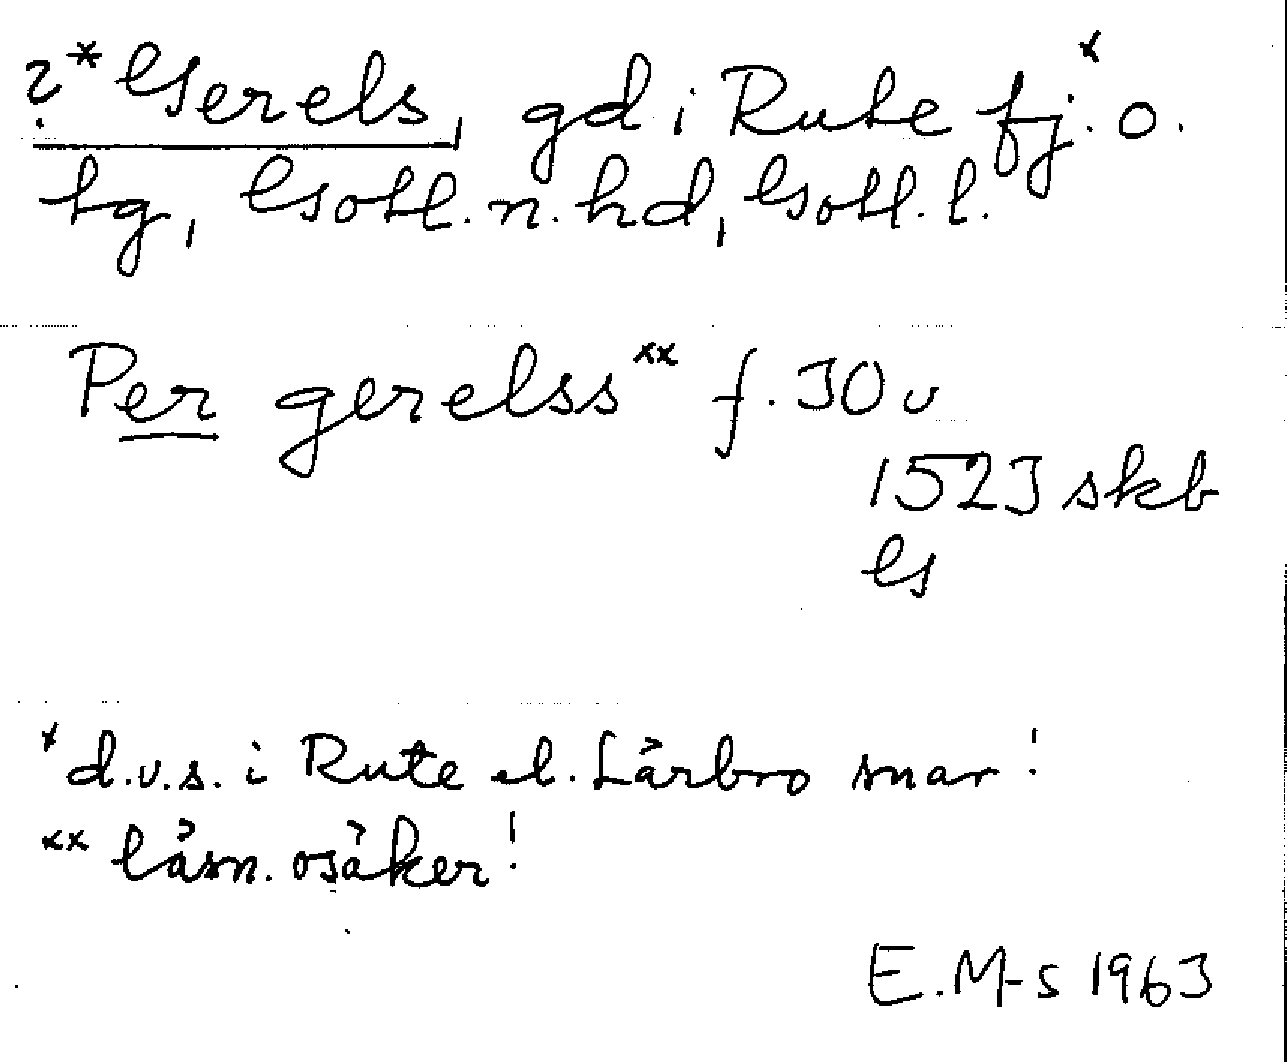 ?*Gerels, gd i Rute fj.x o.
tg, Gotl. n. hd, Gotl. l.
Per gerelss xx f. 30 v
1523 skb
G
x d.v.s. i Rute el. Lärbro snar!
xx läsn. osäker!
E. M-s 1963